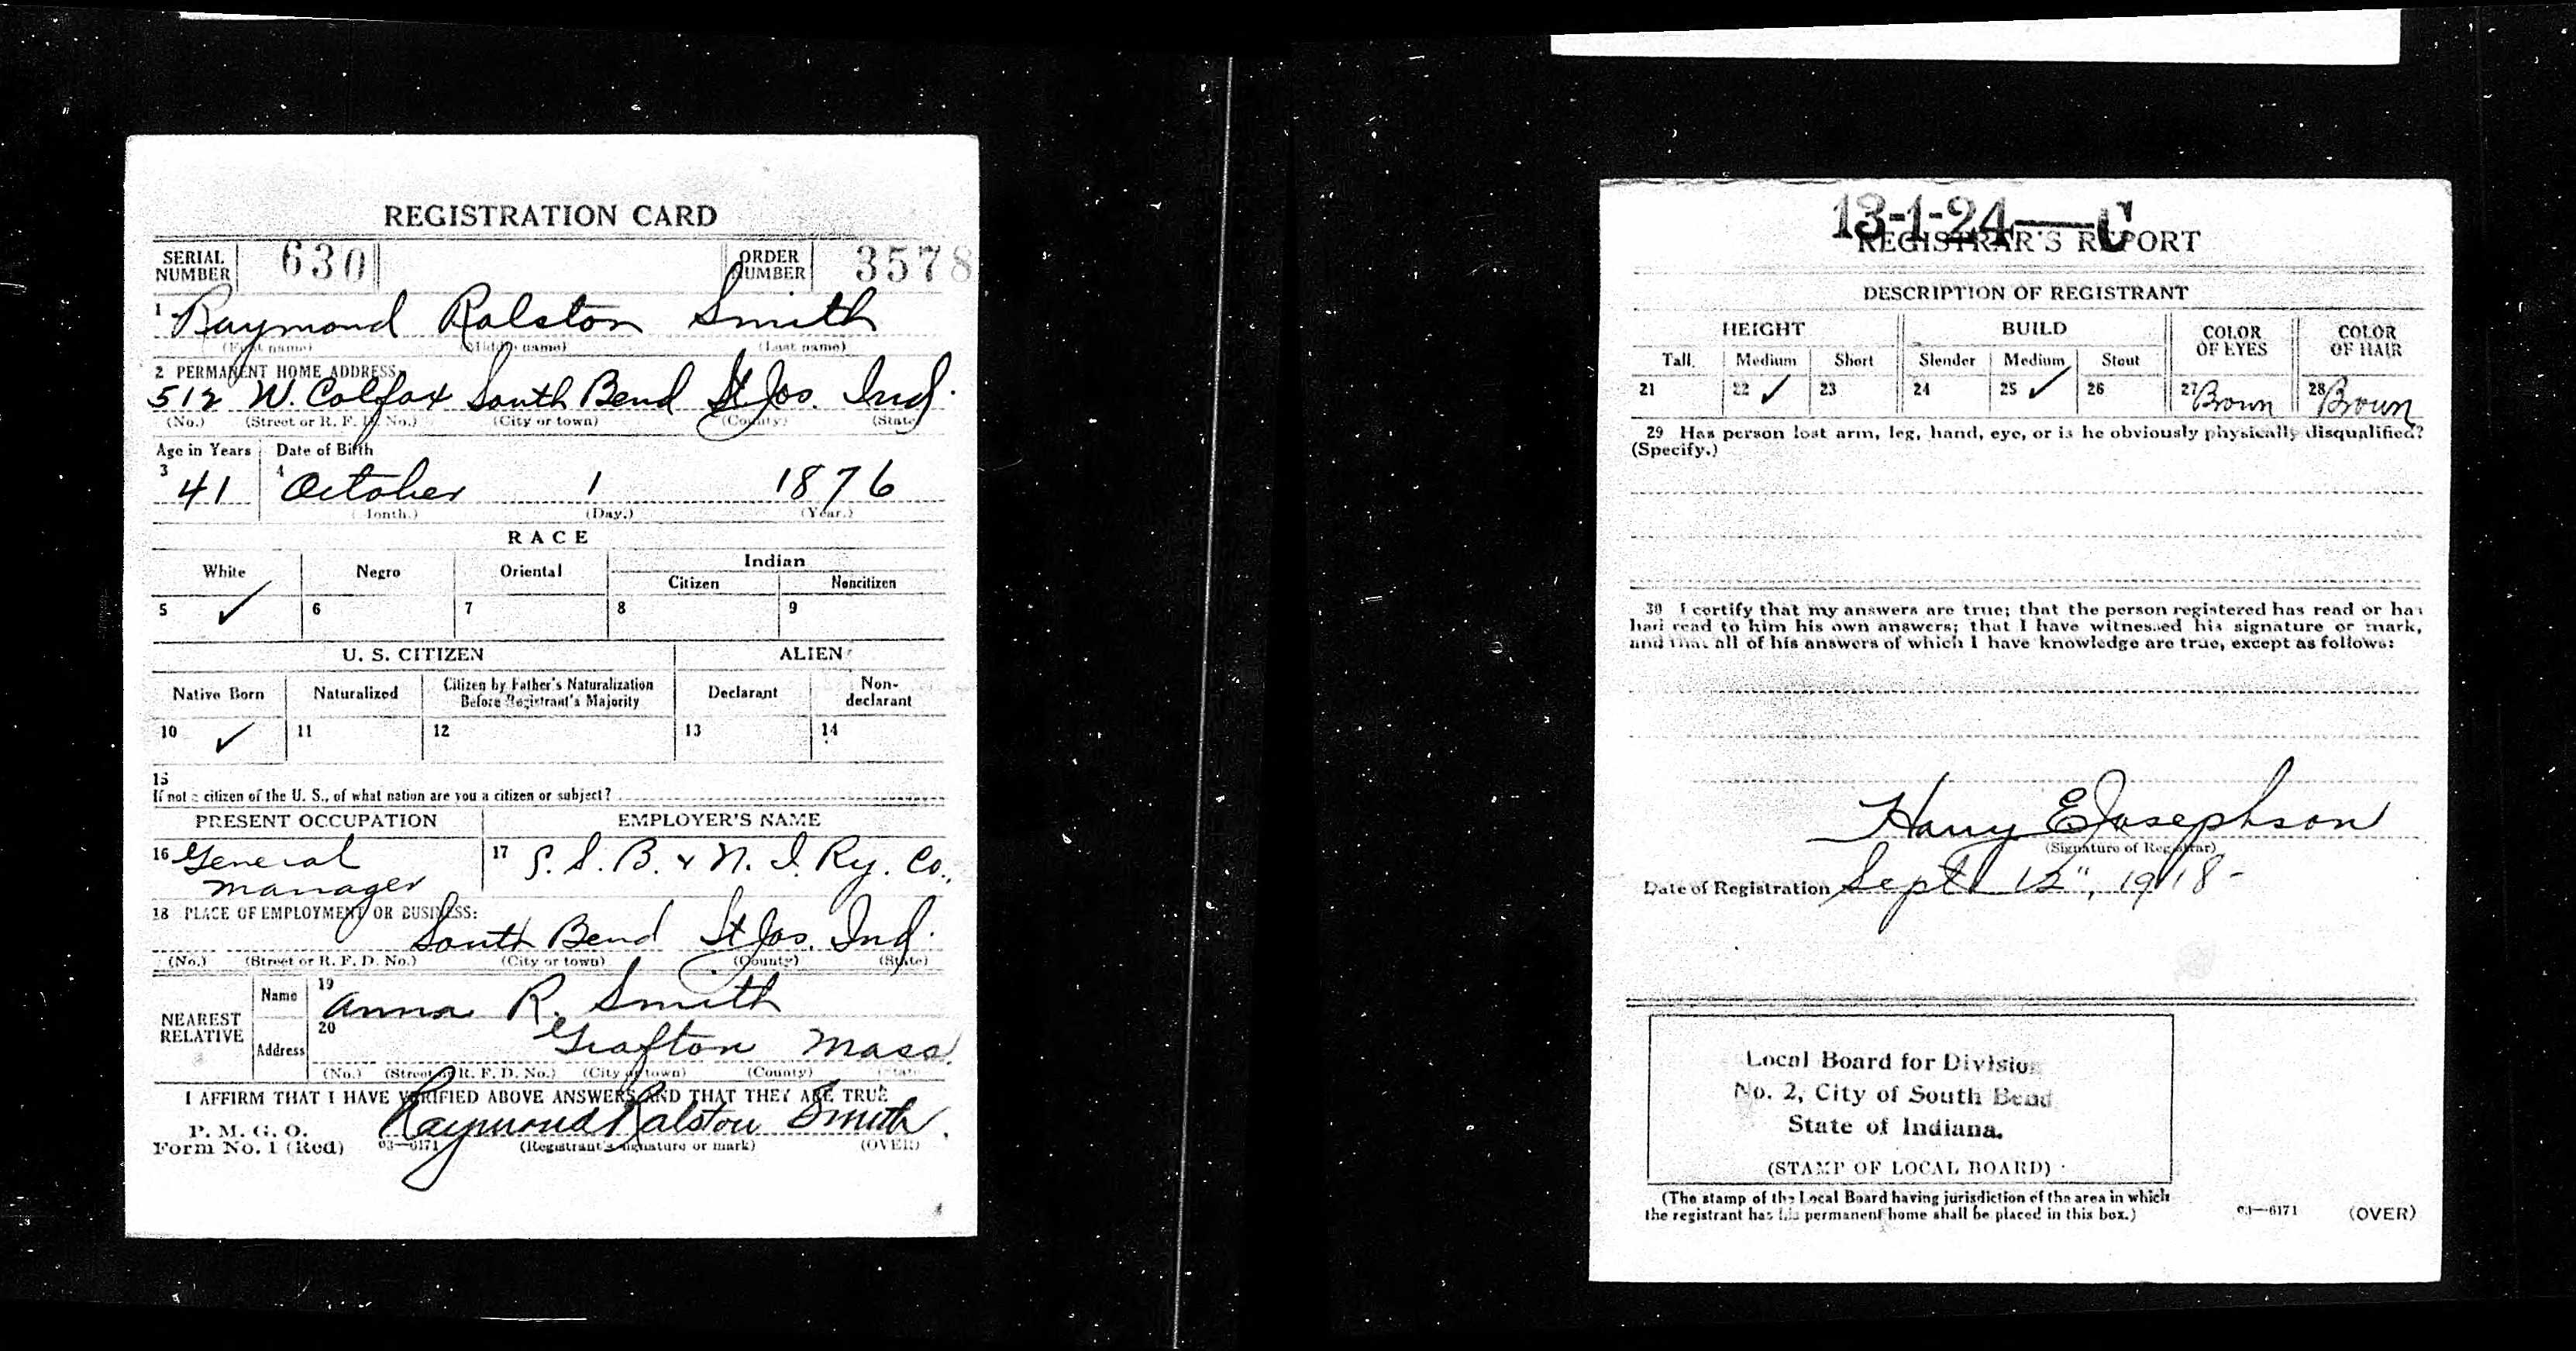 REGISTRATION CARD
SERIAL NUMBER 630 ORDER NUMBER 3578
1 Raymond Ralston Smith
(First name) (Middle name) (Last name)
2 PERMANENT HOME ADDRESS:
512 W. Colfax South Bend St Jos. Ind.
(No.) (Street or R. F. D. No.) (City or town) (County) (State)
Age in Years Date of Birth
3 41 4 October 1 1876
(Month.) (Day.) (Year.)
RACE
White Negro Oriental Indian
Citizen Noncitizen
5 ✓ 6 7 8 9
U. S. CITIZEN ALIEN
Native Born Naturalized Citizen by Father's Naturalization Before Registrant's Majority Declarant Non-declarant
10 ✓ 11 12 13 14
15
If not a citizen of the U. S., of what nation are you a citizen or subject?
PRESENT OCCUPATION EMPLOYER'S NAME
16 General Manager 17 S. S. B. & N. I. Ry. Co.
18 PLACE OF EMPLOYMENT OR BUSINESS:
South Bend St Jos. Ind.
(No.) (Street or R. F. D. No.) (City or town) (County) (State)
NEAREST RELATIVE
Name 19 Anna R. Smith
Address 20 Grafton Mass
(No.) (Street or R. F. D. No.) (City or town) (County) (State)
I AFFIRM THAT I HAVE VERIFIED ABOVE ANSWERS AND THAT THEY ARE TRUE
P. M. G. O.
Form No. 1 (Red) 03—6171 Raymond Ralston Smith
(Registrant's signature or mark) (OVER)
13-1-24—C
REGISTRAR'S REPORT
DESCRIPTION OF REGISTRANT
HEIGHT BUILD COLOR OF EYES COLOR OF HAIR
Tall Medium Short Slender Medium Stout
21 22 ✓ 23 24 25 ✓ 26 27 Brown 28 Brown
29 Has person lost arm, leg, hand, eye, or is he obviously physically disqualified?
(Specify.)
30 I certify that my answers are true; that the person registered has read or has
had read to him his own answers; that I have witnessed his signature or mark,
and that all of his answers of which I have knowledge are true, except as follows:
Harry E Josephson
(Signature of Registrar)
Date of Registration Sept 12", 1918-
Local Board for Division
No. 2, City of South Bend
State of Indiana.
(STAMP OF LOCAL BOARD)
(The stamp of the Local Board having jurisdiction of the area in which
the registrant has his permanent home shall be placed in this box.)
03—6171 (OVER)